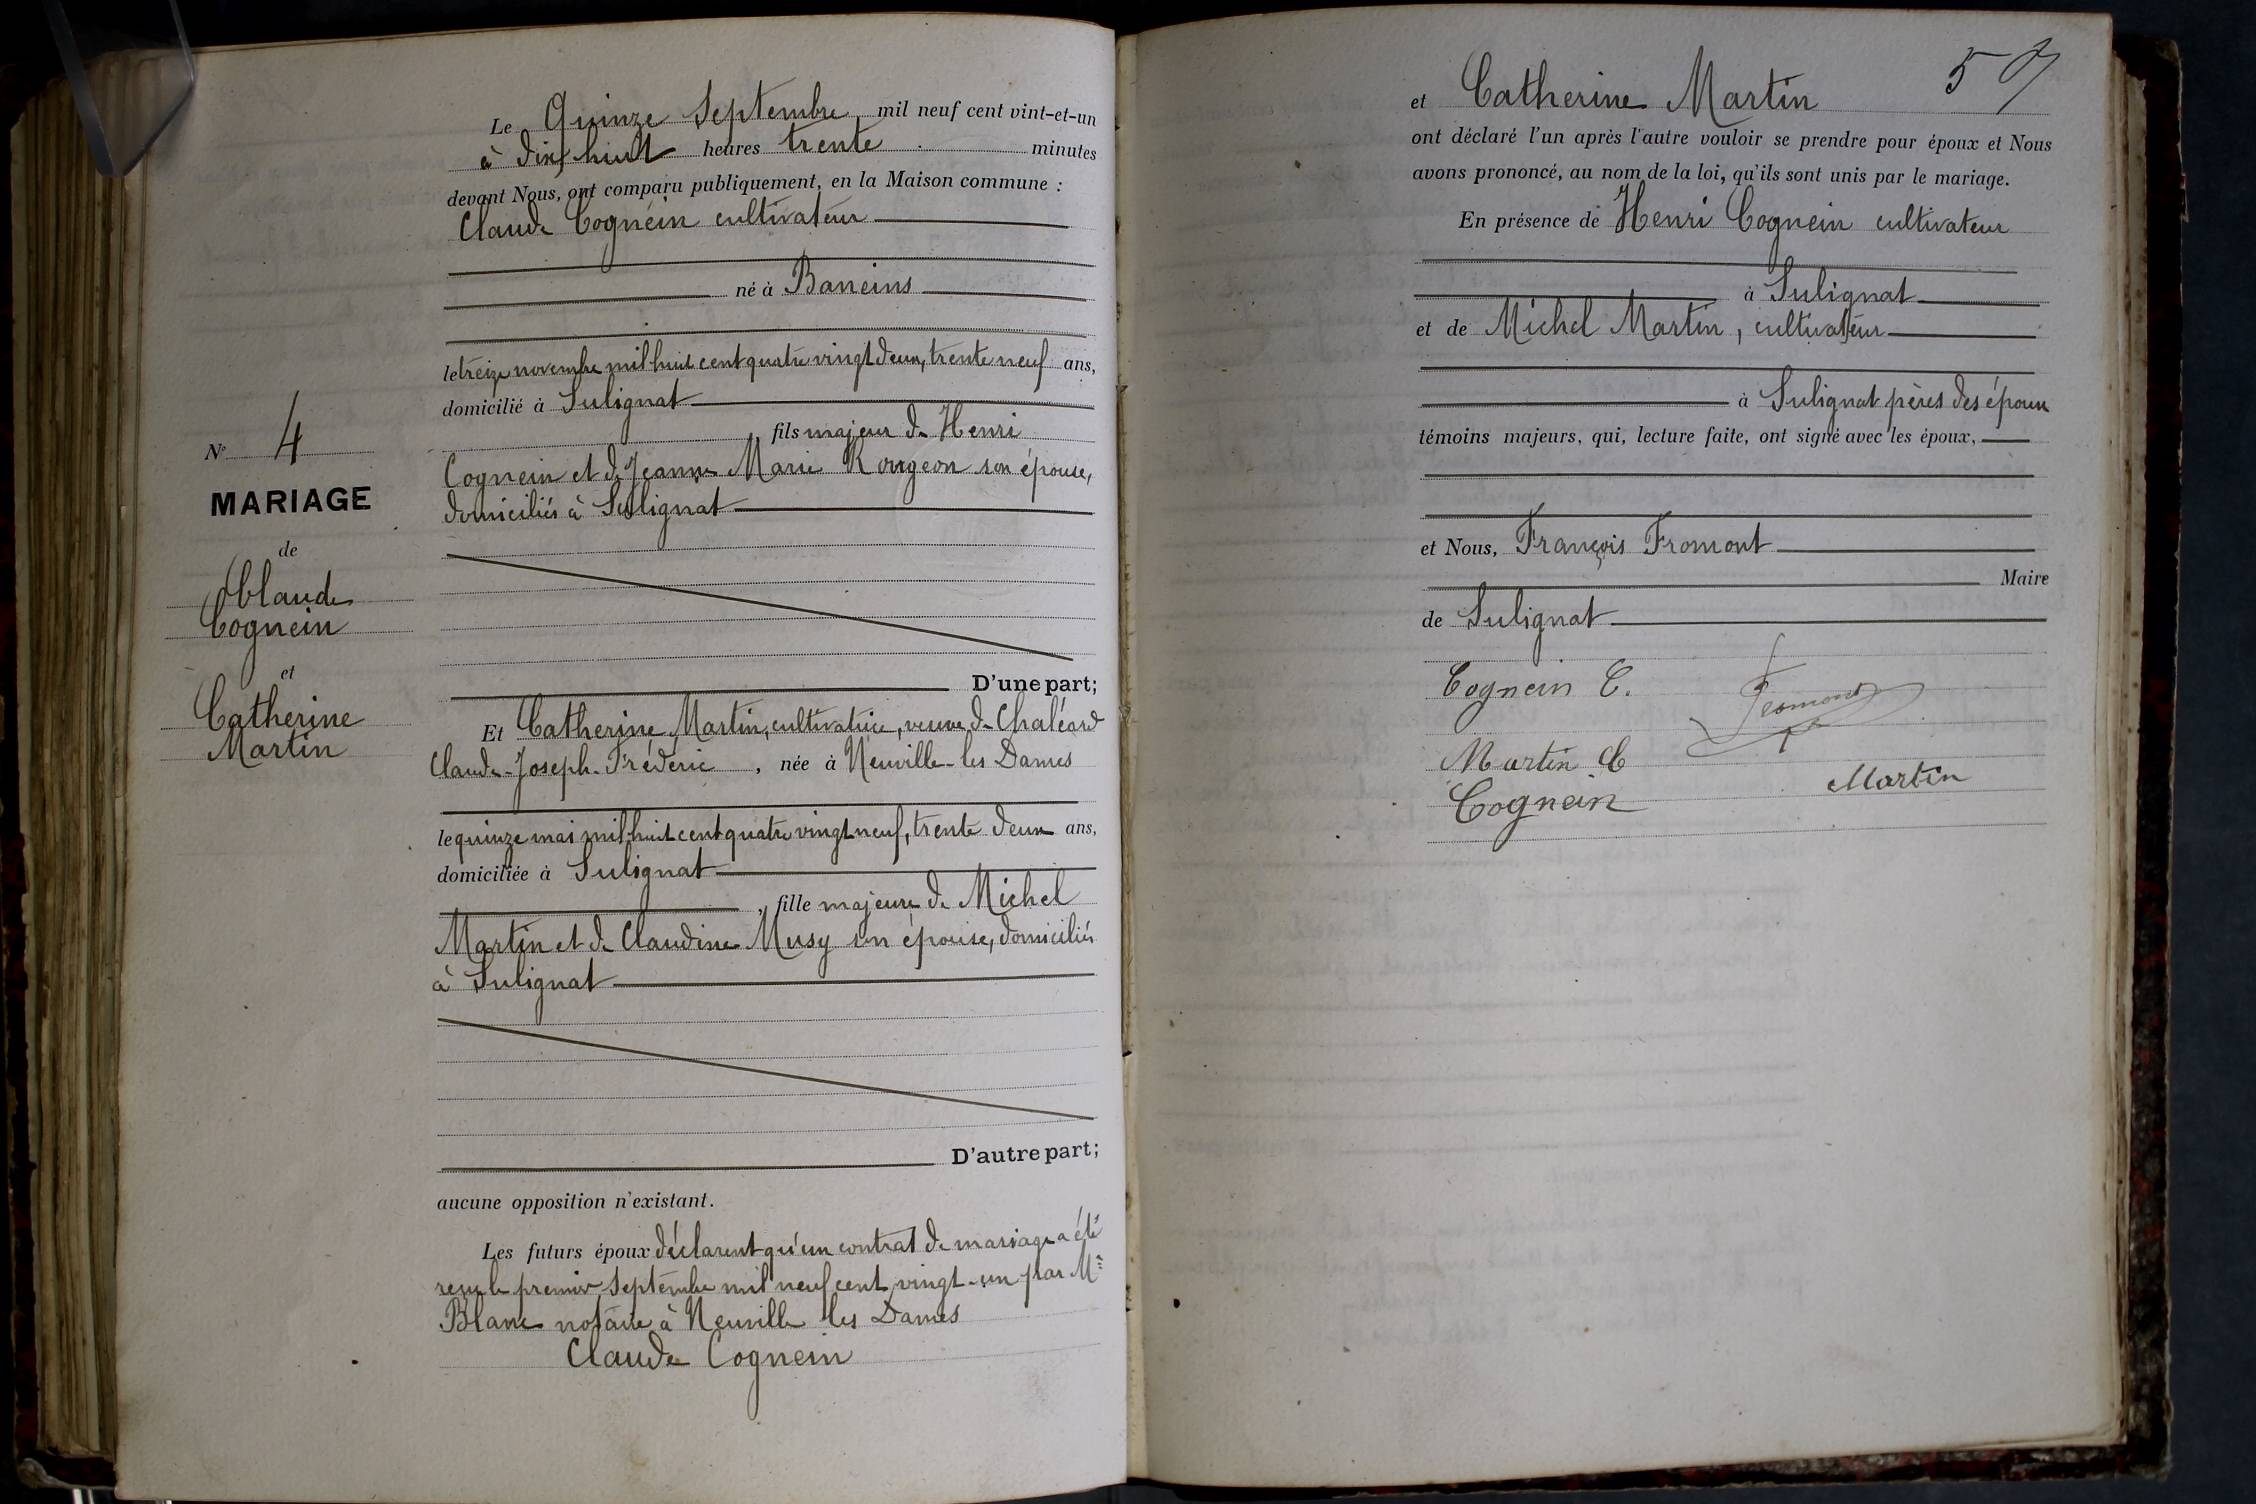 Le Quinze Septembre mil neuf cent vint-et-un
à dix huit heures trente minutes
devant Nous, ont comparu publiquement, en la Maison commune :
Claude Cognein cultivateur
né à Baneins
le treize novembre mil huit cent quatre vingt deux, trente neuf ans,
domicilié à Sulignat
, fils majeur de Henri
Cognein et de Jeanne Marie Rougeon son épouse,
domiciliés à Sulignat
D'une part;
Et Catherine Martin, cultivatrice, veuve de Chaléard
Claude-Joseph-Fréderic, née à Neuville-les Dames
le quinze mai mil huit cent quatre vingt neuf, trente deux ans,
domiciliée à Sulignat
, fille majeure de Michel
Martin et de Claudine Musy son épouse, domiciliés
à Sulignat
D'autre part;
aucune opposition n'existant.
Les futurs époux déclarent qu'un contrat de mariage a été
reçu le premier Septembre mil neuf cent vingt-un par Me
Blanc notaire à Neuville les Dames
Claude Cognein
No 4
MARIAGE
de
Claude
Cognein
et
Catherine
Martin
57
et Catherine Martin
ont déclaré l'un après l'autre vouloir se prendre pour époux et Nous
avons prononcé, au nom de la loi, qu'ils sont unis par le mariage.
En présence de Henri Cognein cultivateur
à Sulignat
et de Michel Martin, cultivateur
à Sulignat pères des époux
témoins majeurs, qui, lecture faite, ont signé avec les époux,
et Nous, François Fromont
Maire
de Sulignat
Cognein C.
Fromont
Martin C
Martin
Cognein